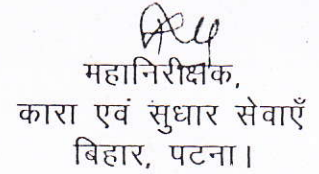 महानिरीक्षक,
कारा एवं सुधार सेवाएँ
बिहार, पटना।